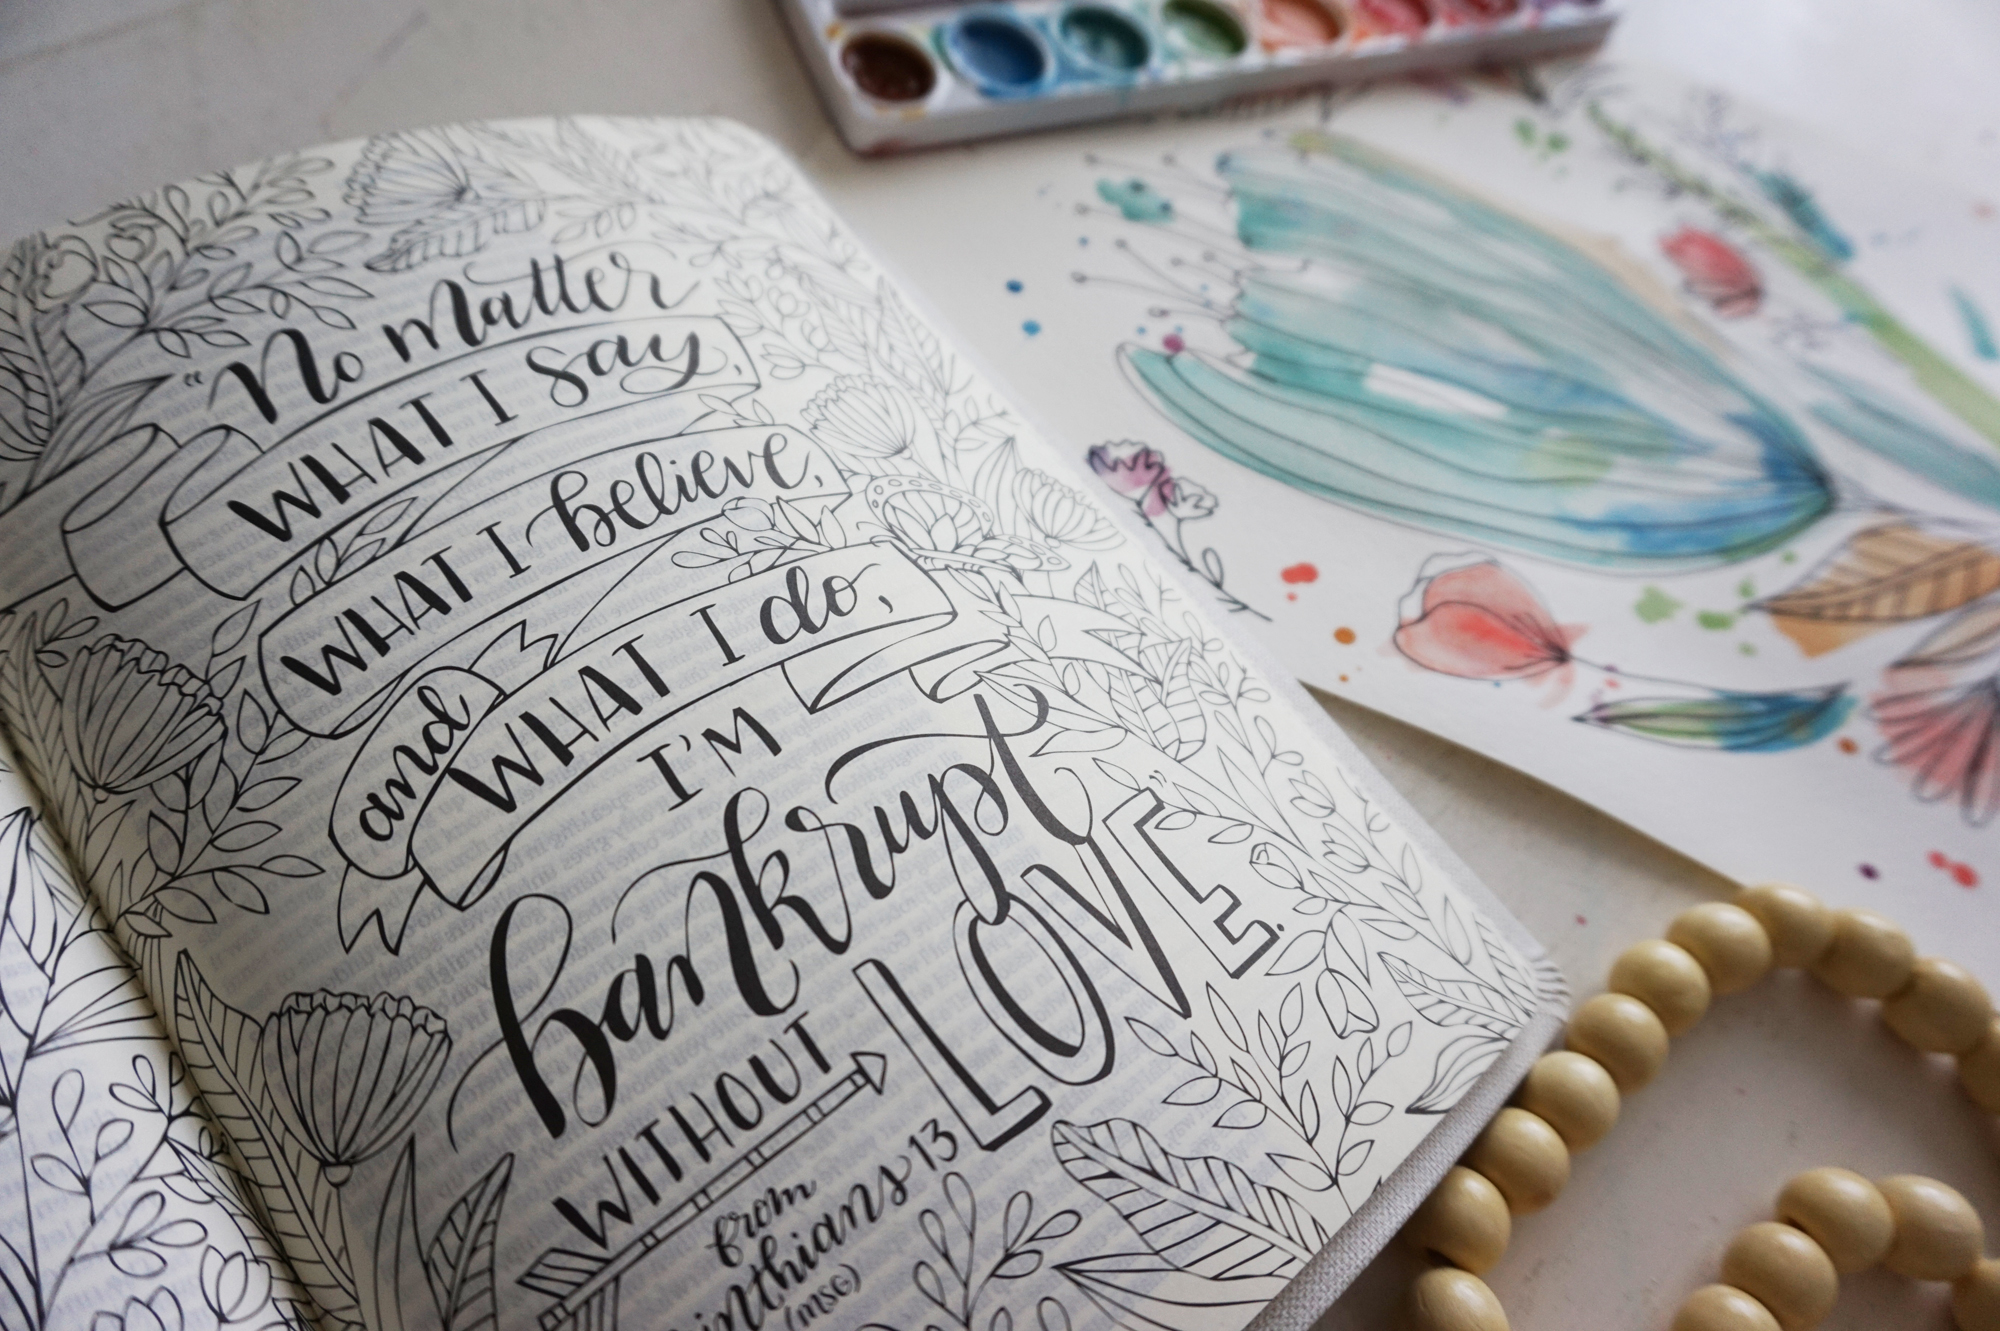 "No matter
WHAT I say,
WHAT I believe,
and WHAT I do,
I'M
bankrupt
WITHOUT
LOVE."
from
13
(MSG)